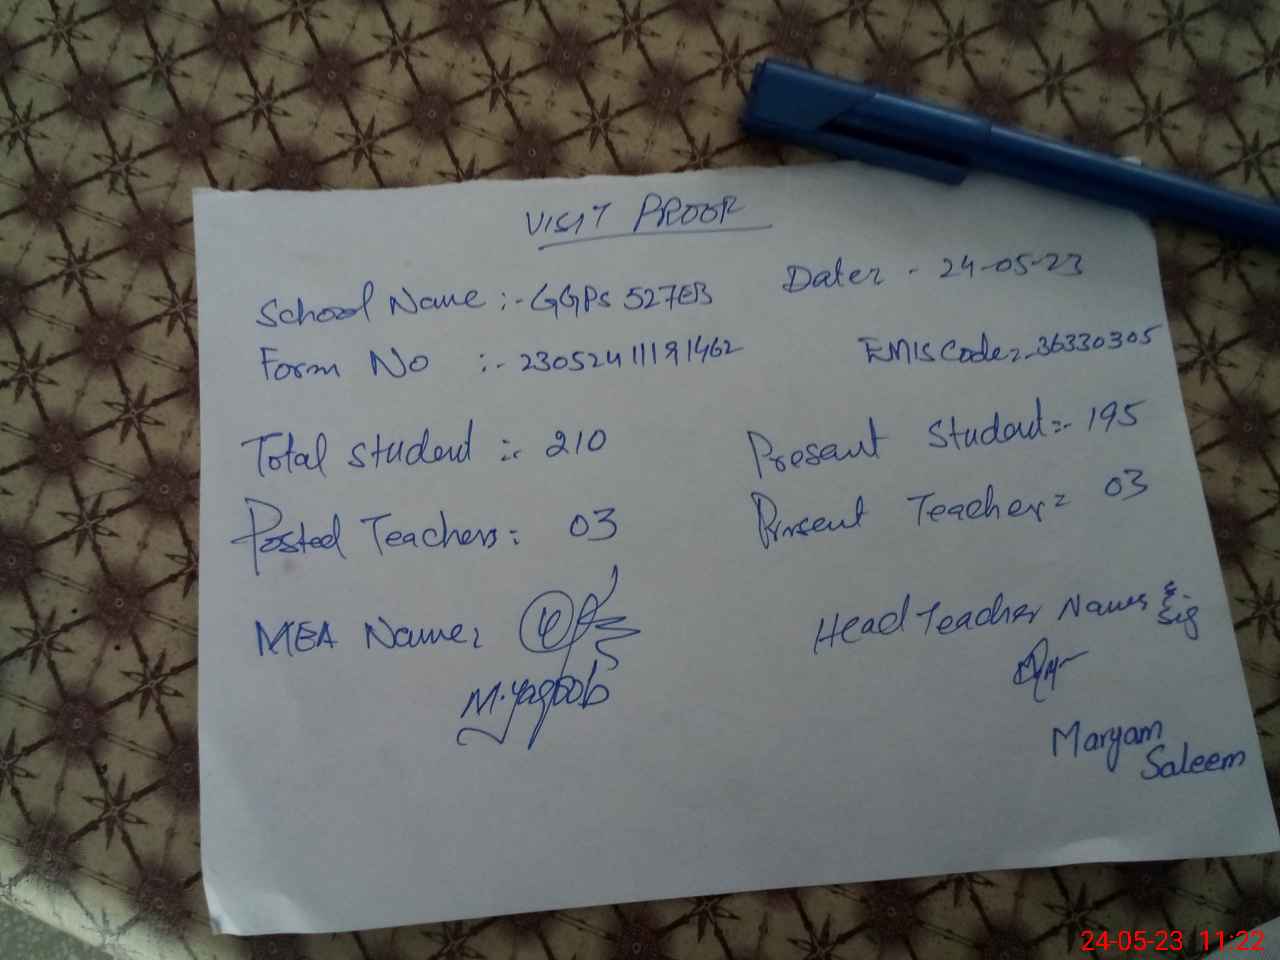 VISIT PROOF
School Name :- GGPS 527EB Date:- 24-05-23
Form No :- 23052411191462 EMIS Code:- 36330305
Total student :- 210 Present Student:- 195
Posted Teachers: 03 Present Teacher: 03
MEA Name: Head Teacher Name & Sig
M.yaqoob
Maryam
Saleem
24-05-23 11:22